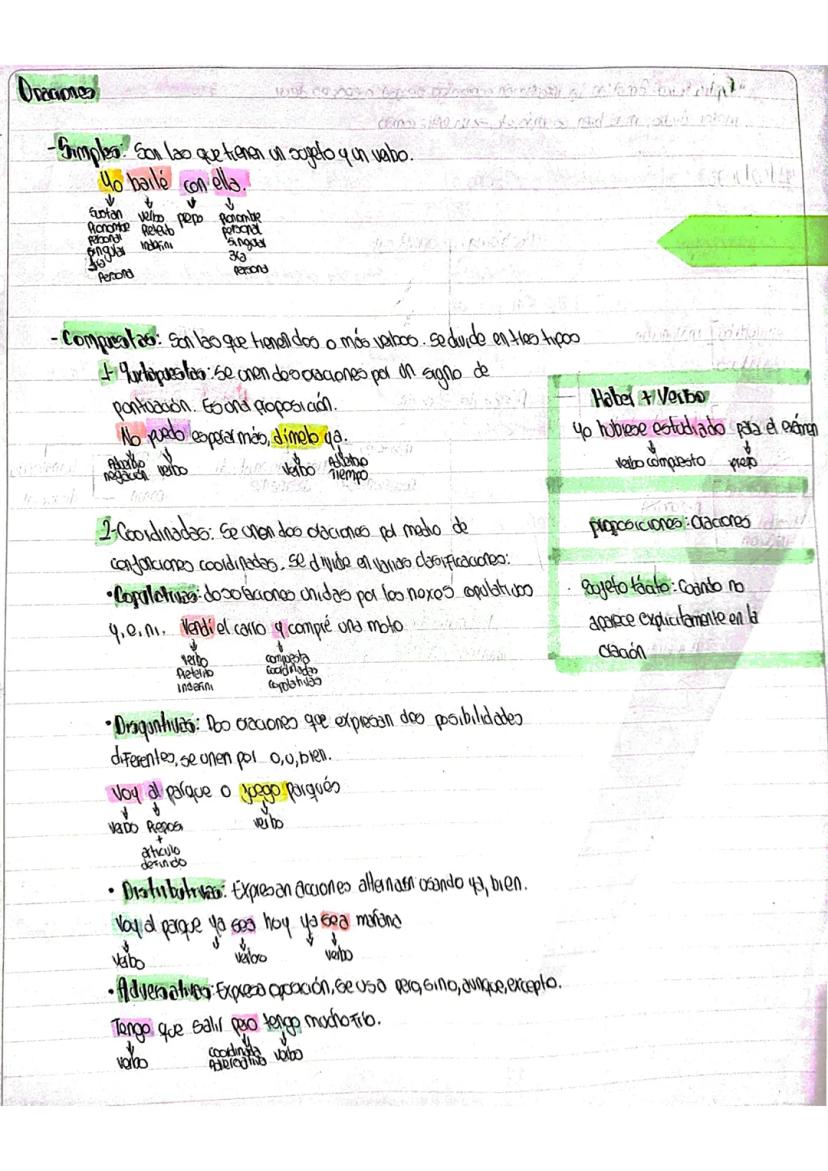 Oraciones
- Simples: Son las que tienen un sujeto y un verbo.
Yo bailé con ella.
Sustan verbo prepo Pronombre
Pronombre Preterito personal
personal indefini singular
singular 3ra
1ra persona
Persona
- Compuestas: Son las que tienen dos o más verbos. Se divide en tres tipos
1- Yuxtapuestas: Se unen dos oraciones por un signo de
puntuación. Es una proposición.
No puedo esperar más, dimelo ya.
Adverbio verbo verbo Adverbio
negación Tiempo
Haber + Verbo
Yo hubiese estudiado para el exámen
verbo compuesto prepo
proposiciones: Oraciones
Sujeto tácito: Cuando no
aparece explicitamente en la
oración
2-Coordinadas: Se unen dos oraciones por medio de
conjunciones coordinadas. Se divide en varias clasificaciones:
• Copulativas: dos oraciones unidas por los nexos copulativos
y, e, ni. Vendí el carro y compré una moto
verbo compuesta
Preterito coordinadas
Indefini copulativas
• Disyuntivas: Dos oraciones que expresan dos posibilidades
diferentes, se unen por o, u, bien.
Voy al parque o juego parqués
verbo Prepos verbo
+
artículo
definido
• Distributivas: Expresan acciones alternasn usando ya, bien.
Voy al parque ya sea hoy ya sea mañana
verbo verbo verbo
• Adversativas: Expresa oposición, se usa pero, sino, aunque, excepto.
Tengo que salir pero tengo mucho frío.
verbo coordinada verbo